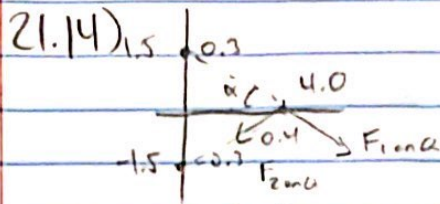 21.14) 1.5 0.3
4.0
0.4 F1 on Q
-1.5 0.3 F2 on Q